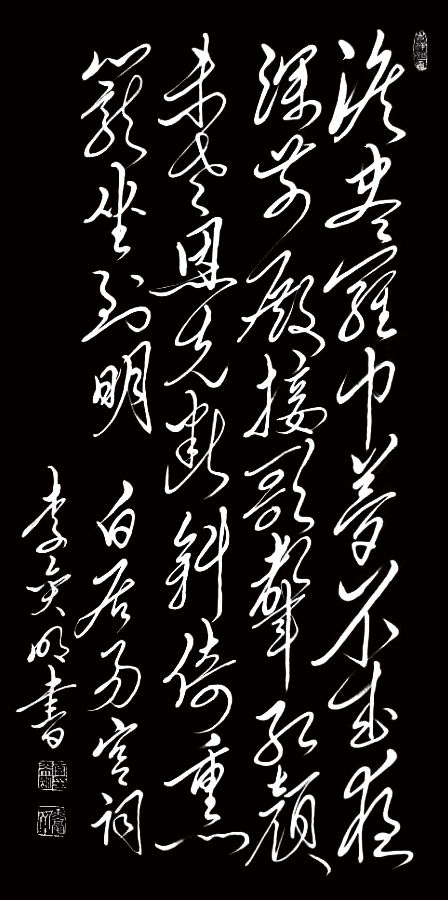 淚盡羅巾夢不成夜
深前殿接歌聲紅顏
未老恩先斷斜倚熏
籠坐到明 白居易宮詞
李明書